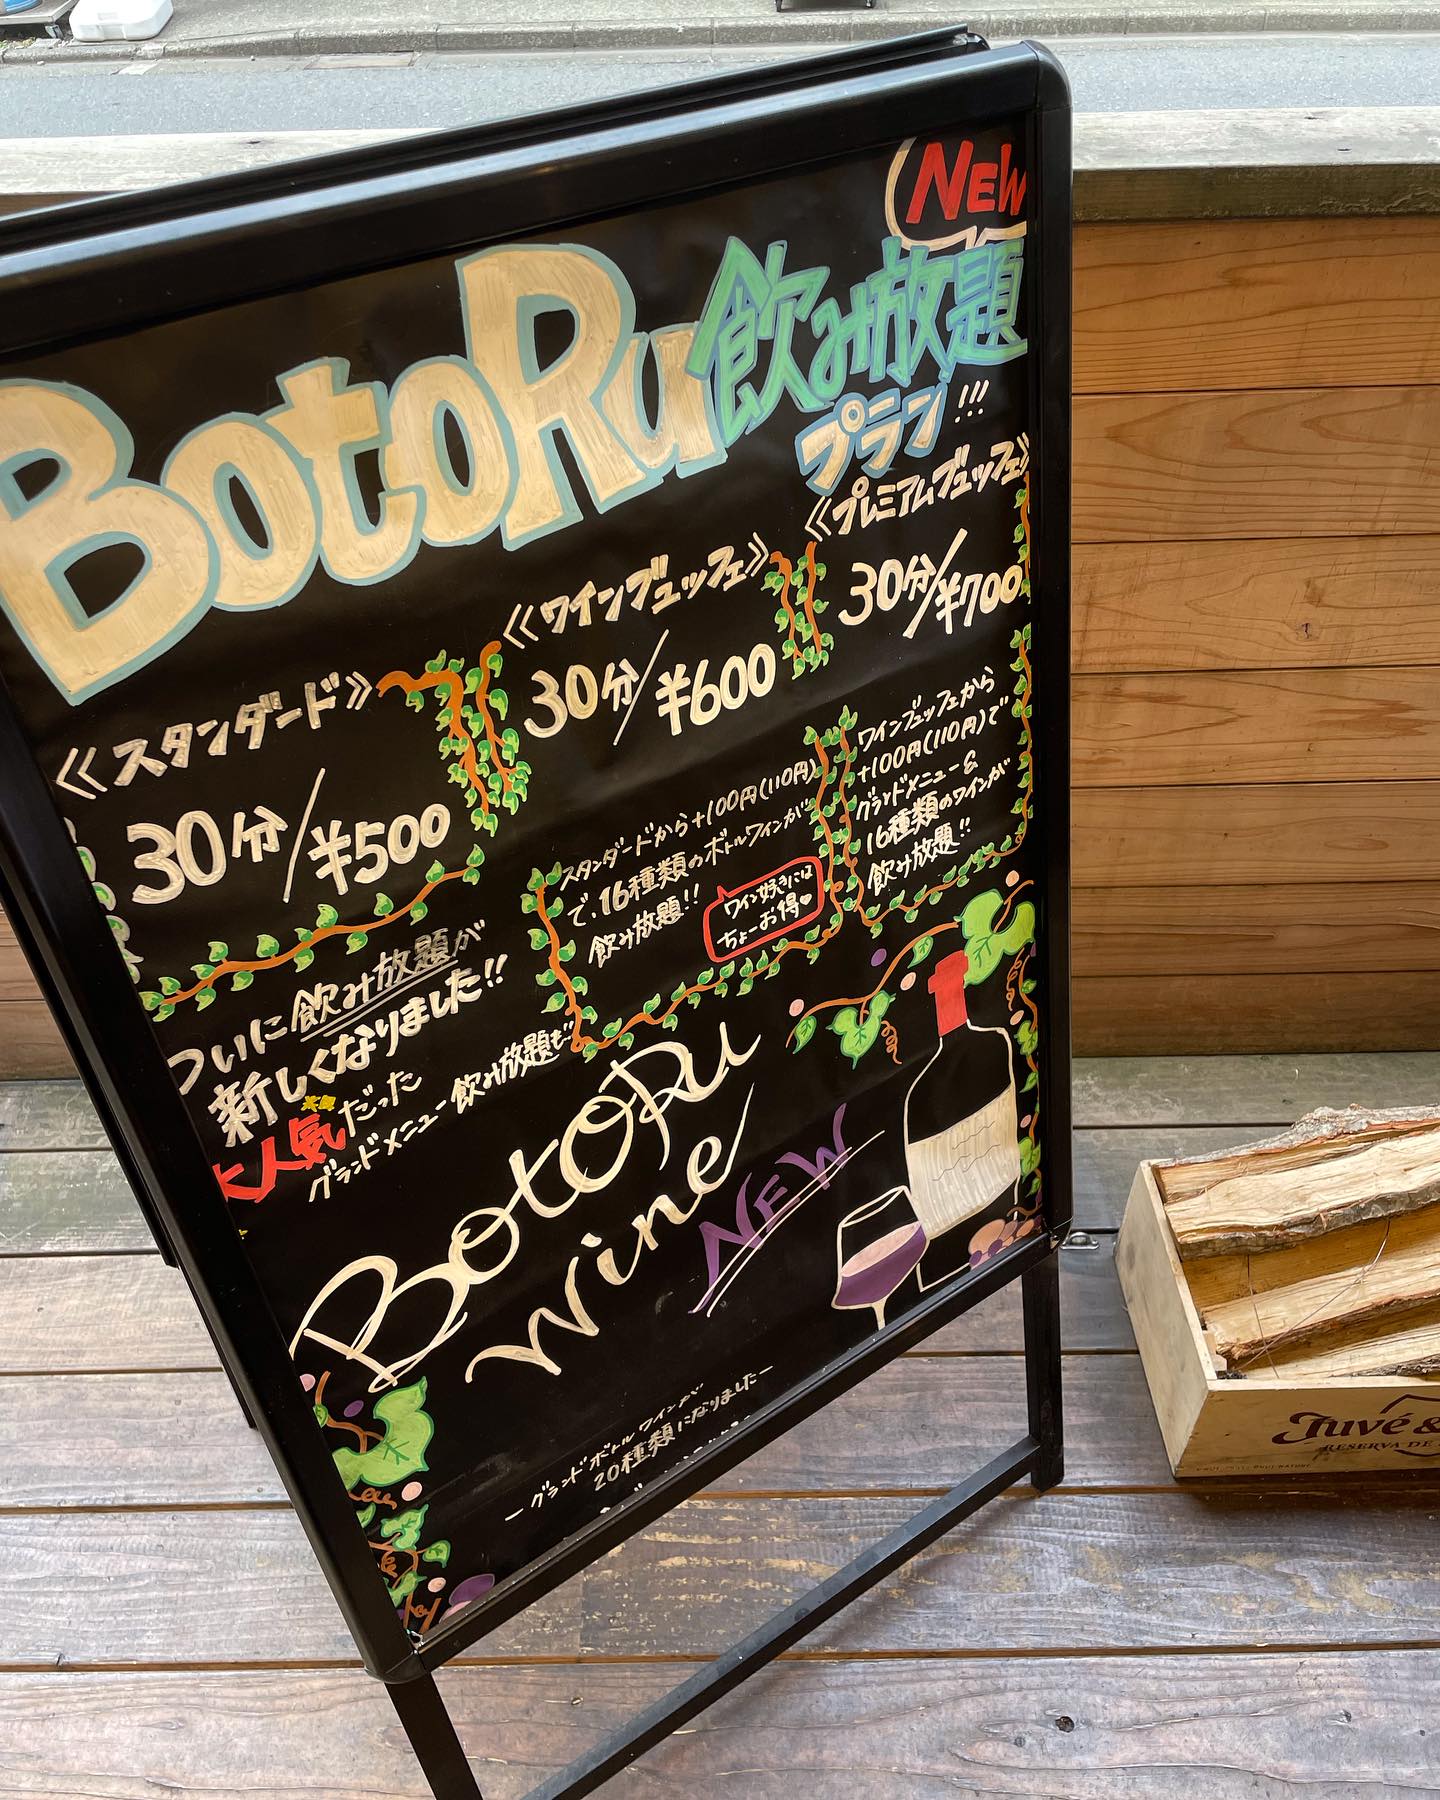 NEW
BotoRu 飲み放題
プラン!!!
《スタンダード》
30分/¥500
《ワインブュッフェ》
30分/¥600
スタンダードから+100円(110円)
で、16種類のボトルワインが
飲み放題!!
ワイン好きには
ちょーお得♥
《プレミアムブュッフェ》
30分/¥700
ワインブュッフェから
+100円(110円)で
グランドメニュー&
16種類のワインが
飲み放題!!
ついに飲み放題が
新しくなりました!!
大人気だった
グランドメニュー飲み放題も
BotoRu
wine
NEW
ーグランドボトルワインが
20種類になりましたー
Juvé &
RESERVA DE